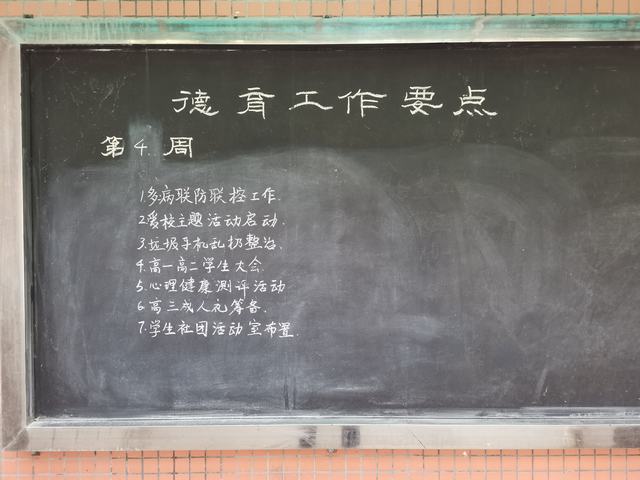 德育工作要点
第4周
1.多病联防联控工作.
2.爱校主题活动启动.
3.垃圾手机乱扔整治.
4.高一高二学生大会
5.心理健康测评活动
6.高三成人礼筹备.
7.学生社团活动室布置.